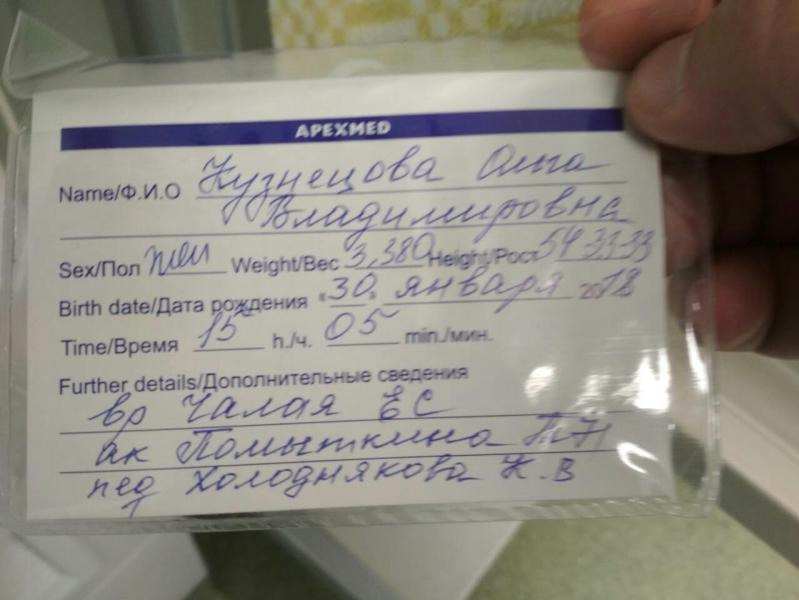 APEXMED
Name/Ф.И.О Кузнецова Ольга
Владимировна
Sex/Пол жен Weight/Вес 3,380 Height/Рост 54-33-33
Birth date/Дата рождения «30» января 2018
Time/Время 15 h./ч. 05 min./мин.
Further details/Дополнительные сведения
вр Чалая ЕС
ак Помыткина
пед Холоднякова К.В